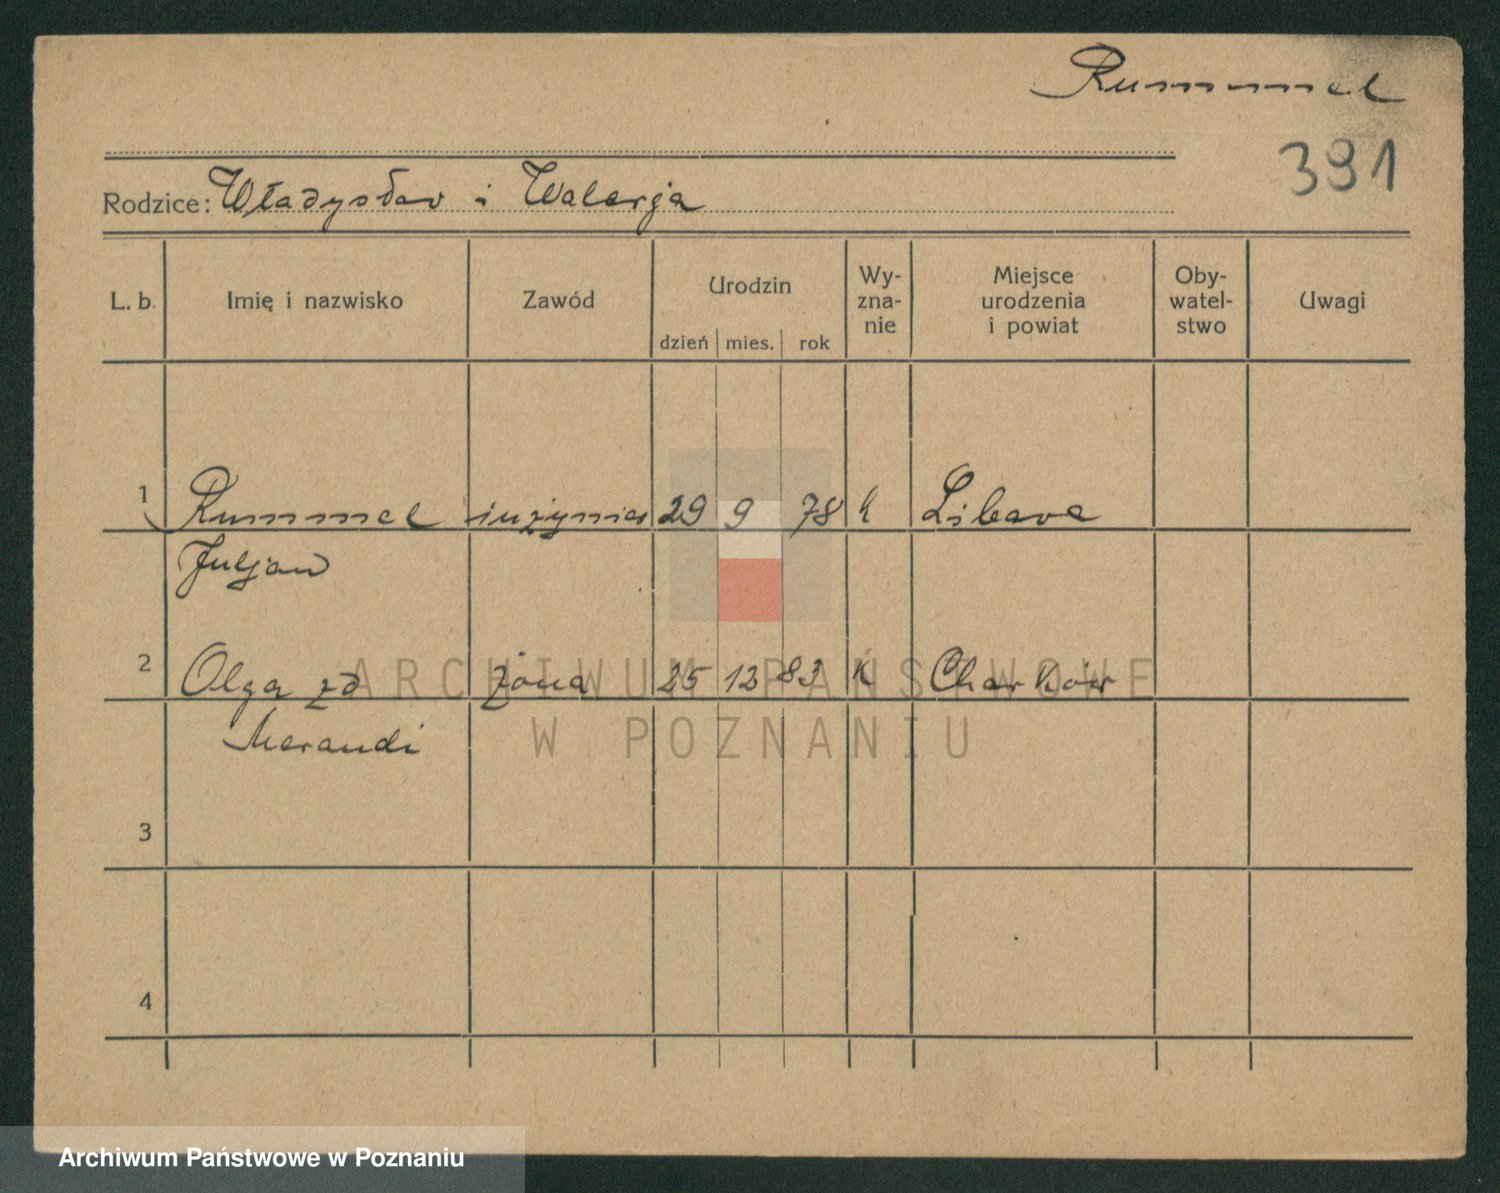 Rummel
391
Rodzice: Władysław i Walerja
L. b. Imię i nazwisko Zawód Urodzin Wy-zna-nie Miejsce urodzenia i powiat Oby-watel-stwo Uwagi
dzień mies. rok
1 Rummel inżynier 29 9 78 k Libava
Juljan
2 Olga zd żona 25 12 83 k Charków
Morandi
3
4
ARCHIWUM PAŃSTWOWE
W POZNANIU
Archiwum Państwowe w Poznaniu